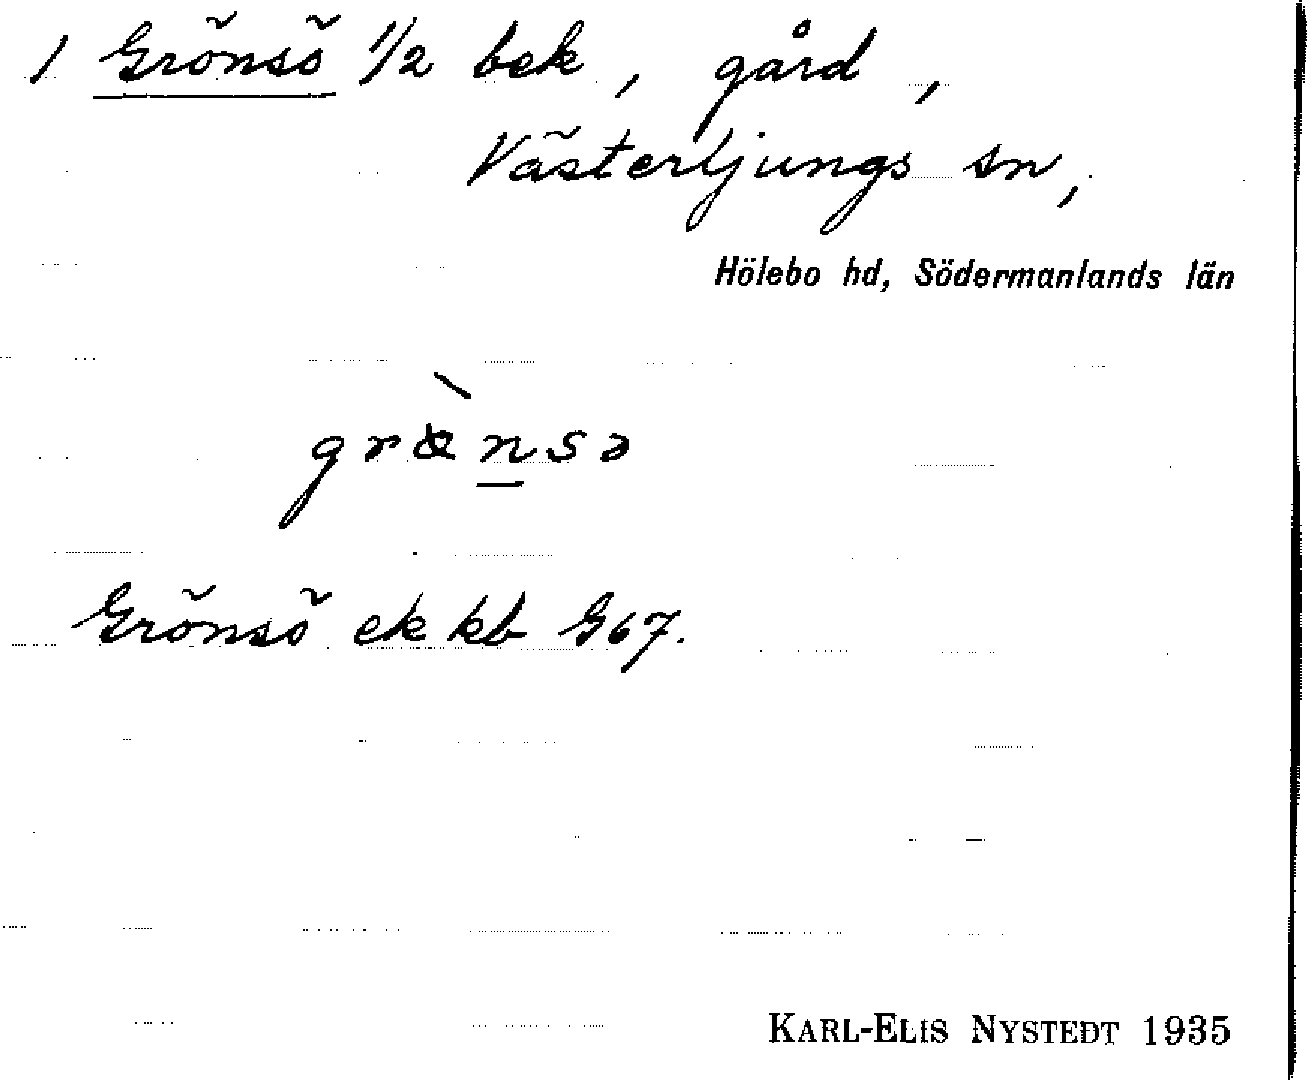 1 Grönsö 1/2 bek, gård,
Västerljungs sn,
Hölebo hd, Södermanlands län
grònsə
Grönsö ek kb G67.
KARL-ELIS NYSTEDT 1935